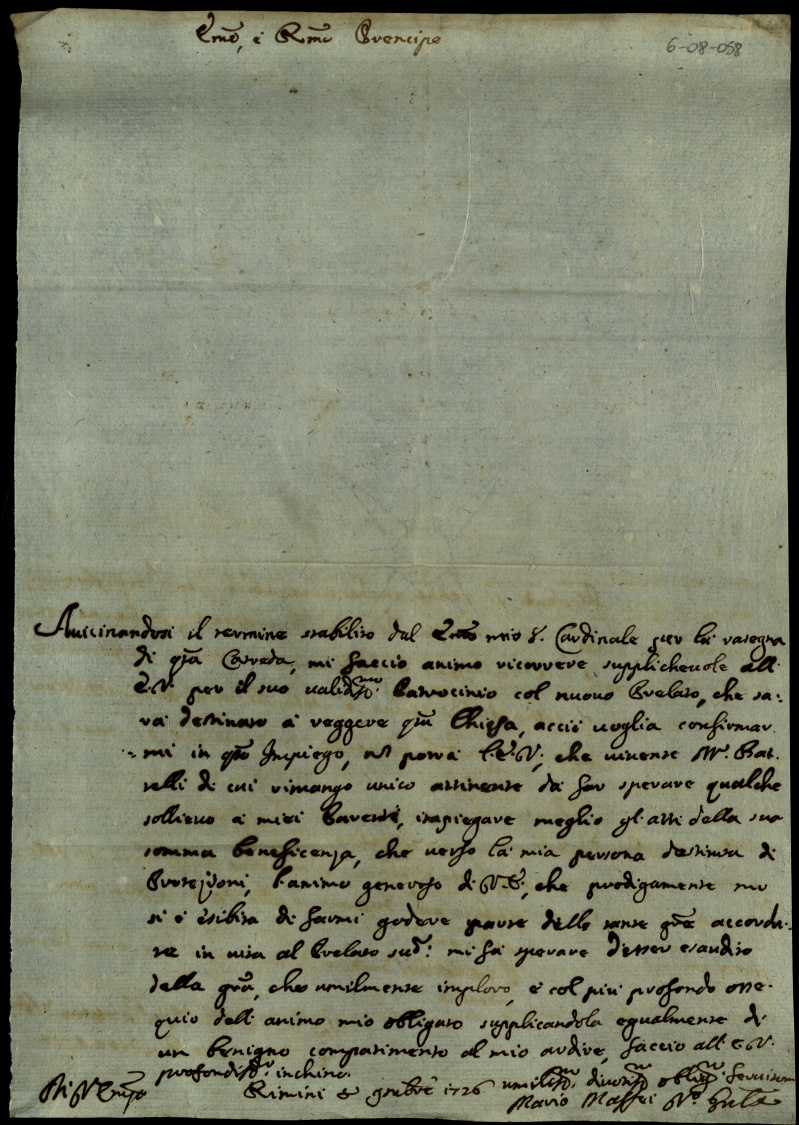 Em̃o, e Rmo Prencipe
6-08-058
Auicinandosi il termine stabilito dal Emo mio S.r Cardinale per la rasegna
di qta Carreda, mi faccio animo ricorrere supplicheuole all'
E.V. per il suo ualidissmo Patrocinio col nuouo Prelato, che sa-
rà destinato a reggere qta Chiesa, acciò uoglia confirmar
mi in qto Impiego, nò potrà l'E.V., che uiuente Mr. Bat-
telli di cui rimango unico attinente da far sperare qualche
sollieuo a miei Parenti, impiegare meglio gl'atti della sua
somma beneficenza, che uerso la mia persona destituta di
Protezzioni, l'animo generoso di V.E., che prodigamente mi
si è esibita di farmi godere parte delle tante gre accorda-
te in uita al Prelato sud.o mi fà sperare d'esser esaudito
della gra, che umilmente imploro, e col più profondo osse-
quio dell'animo mio obligato supplicandola egualmente di
un benigno compatimento al mio ardire, faccio all'E.V.
profondissmo inchino.
Di V. Emza
Rimini 8bre 1726
umilissmo diuotissmo obligmo seruitore
Mario Maffei